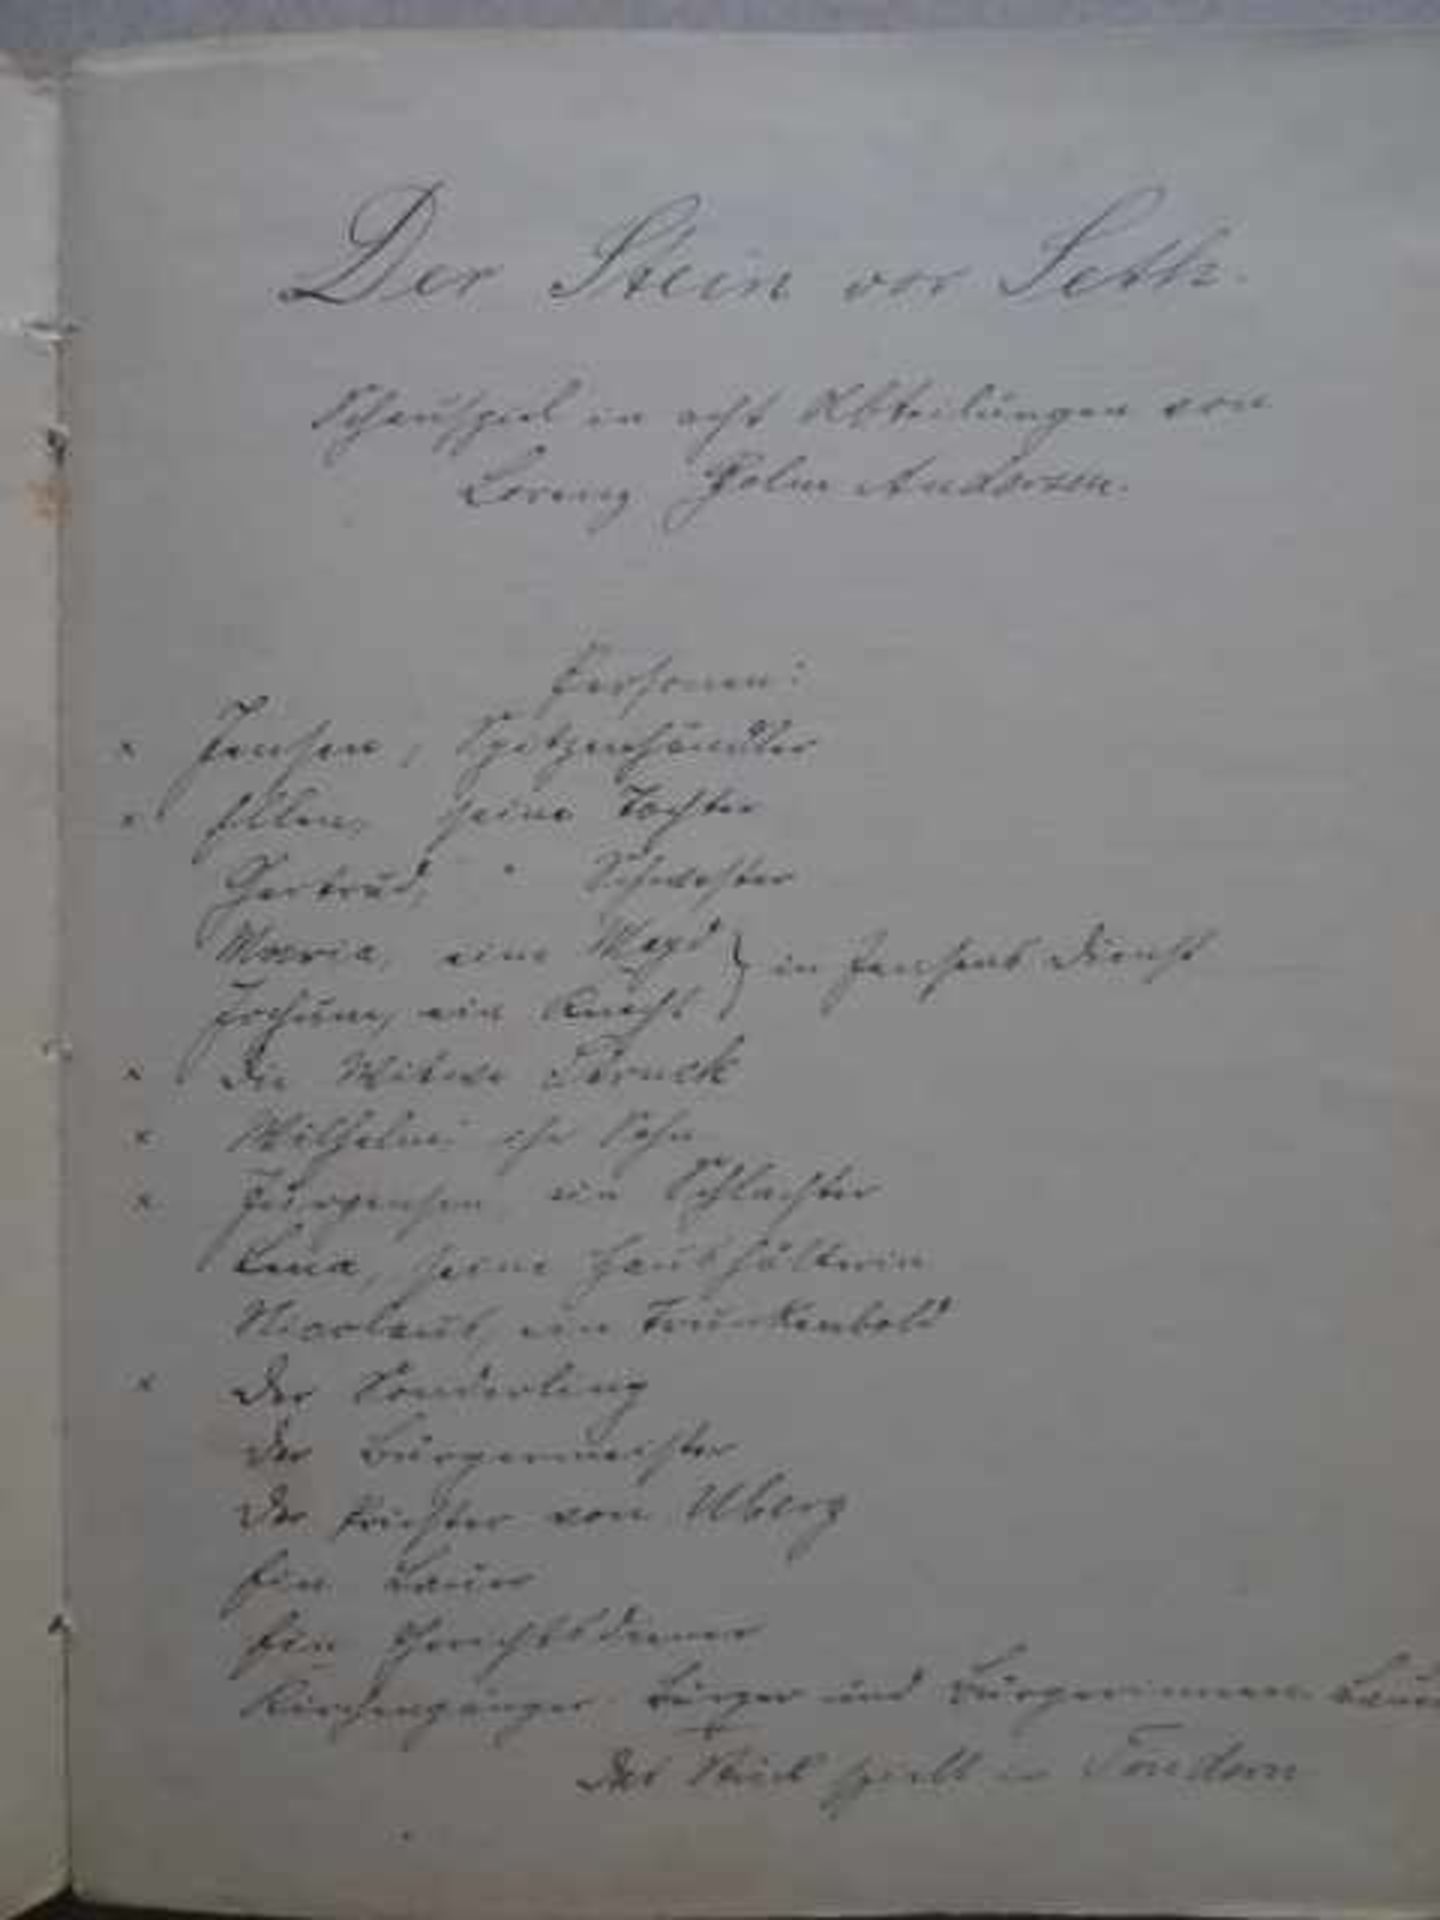 Der Stein vor Seth.
Schauspiel in acht Abteilungen von
Lorenz Holm Andersen.
Personen:
× Jensen, Spitzenhändler
× Ellen, seine Tochter
Gertrud, " Schwester
Marie, eine Magd } in Jensens Dienst
Jochum, ein Knecht
× Die Witwe Struck
× Wilhelm ihr Sohn
× Jürgensen ein Schlachter
Lena, seine Haushälterin
Nicolaus, ein Trunkenbold
× Der Sonderling
Der Bürgermeister
Der Priester von Uberg
Ein Bauer
Ein Gerichtsdiener
Kirchengänger Bürger und Bürgerinnen
Das Stück spielt in Tondern